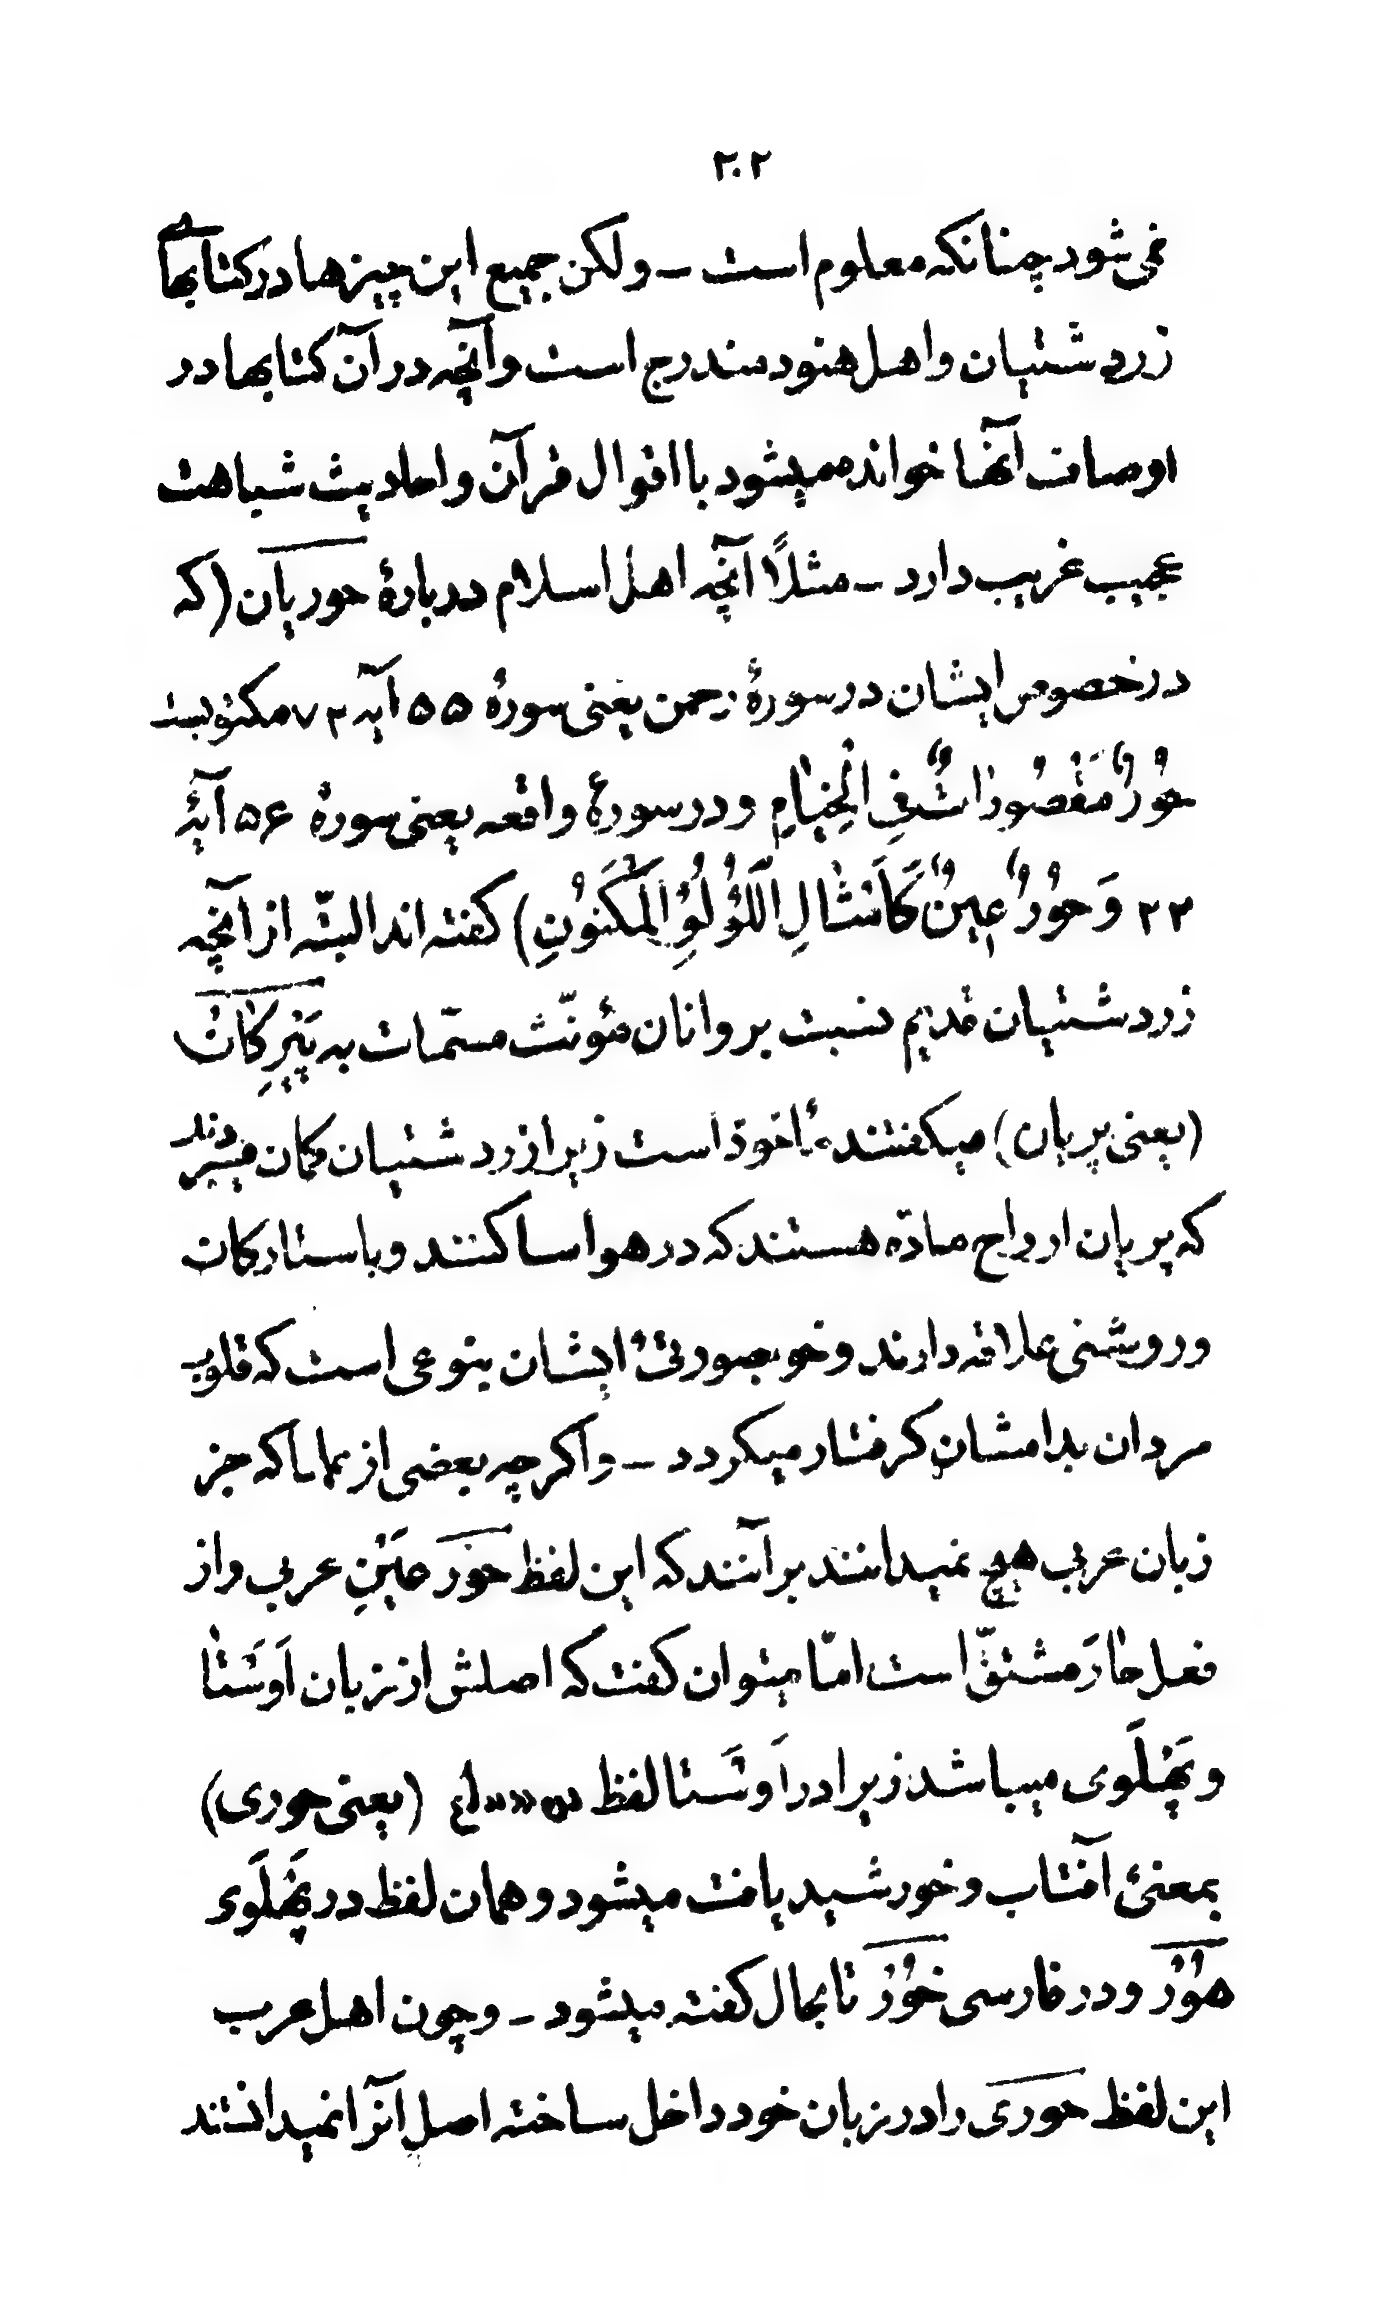 ۲۰۲
نمی شود چنانکه معلوم است – ولکن جمیع این چیزها در کتابهآی
زردشتیان واهل هنود مندرج است وآنچه در آن کتابها در
اوصاف آنها خوانده میشود با اقوال قرآن واحادیث شباهت
عجیب غریب دارد – مثلاً آنچه اهل اسلام دربارهٔ حوریان (که
در خصوص ایشان در سورهٔ رحمن یعنی سورهٔ ۵۵ آیهٔ ۷۲ مکتوبست
حُورٌ مَقْصُورَاتٌ فِی الْخِیَامِ ودر سورهٔ واقعه یعنی سورهٔ ۵۶ آیهٔ
۲۲ وَحُورٌ عِینٌ کَأَمْثَالِ اللُّؤْلُوءِ الْمَکْنُونِ) کفته اند البتّه از آنچه
زردشتیان قدیم نسبت بروانان مؤنّث مسمّات به پَیْرِکَانْ
(یعنی پریان) میکفتند مأخوذ است زیرا زردشتیان کمان میبردند
که پریان ارواح مادّه هستند که در هوا ساکنند وبا ستارکان
وروشنی علاقه دارند وخوبصورتیٔ ایشان بنوعی است که قلوب
مردان بدامشان کرفتار میکردد – واکر چه بعضی از علما که جز
زبان عربی هیچ نمیدانند برآنند که این لفظ حُور عَیْنِ عربی واز
فعل حَارَ مشتقّ است امّا میتوان کفت که اصلش از زبان اَوَسْتَا
وپَهْلَوی میباشد زیرا در اَوَسْتا لفظ (یعنی حوری)
بمعنیٔ آفتاب وخورشید یافت میشود وهمان لفظ در پَهْلَوی
هُوْرْ ودر فارسی خُوْرْ تا بحال کفته میشود – وچون اهل عرب
این لفظ حوری را در زبان خود داخل ساخته اصل آنرا نمیدانستند